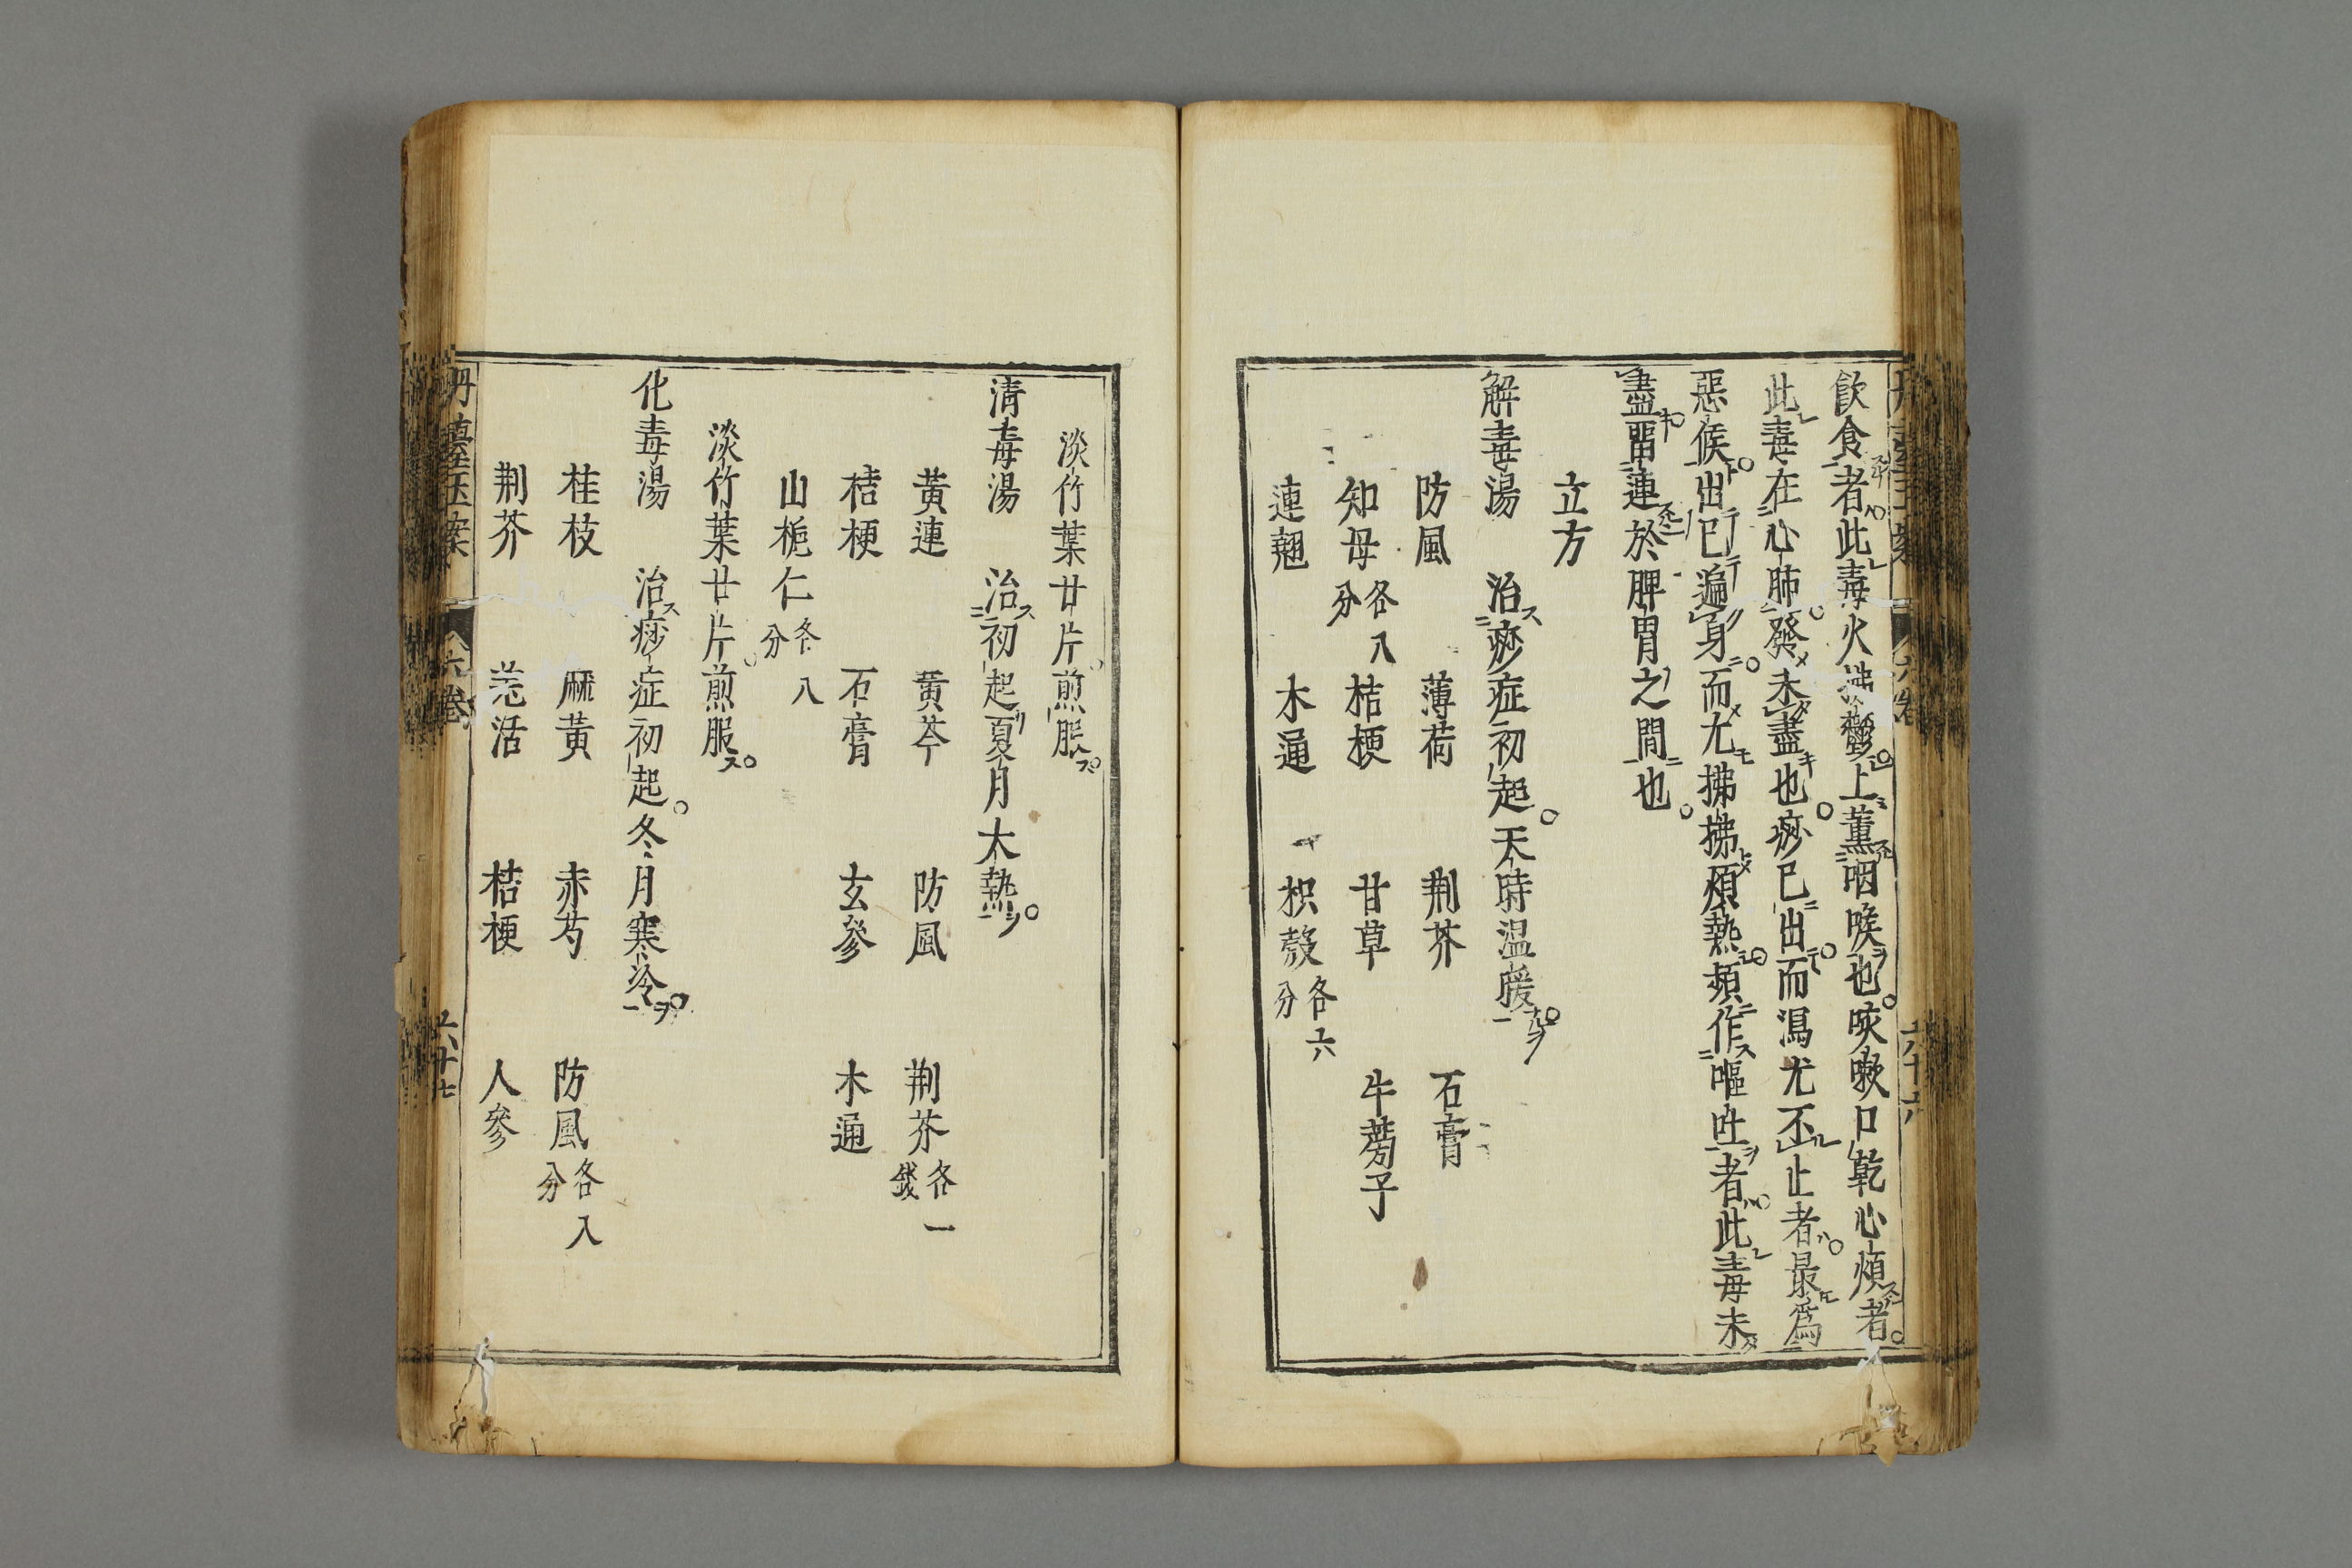 飲食者此毒火拂鬱上薫咽喉也咳嗽口乾心煩者
此毒在心肺發未盡也痧已出而瀉尤不止者最爲
惡候出已遍身而尤拂拂煩熱頻作嘔吐者此毒未
盡畱蓮於脾胃之間也
立方
解毒湯 治痧症初起天時温暖
防風 薄荷 荆芥 石膏
知母各八分 桔梗 甘草 牛蒡子
連翹 木通 枳殼各六分
淡竹葉廿片煎服
清毒湯 治初起夏月大熱
黃連 黃芩 防風 荆芥各一錢
桔梗 石膏 玄參 木通
山梔仁各八分
淡竹葉廿片煎服
化毒湯 治痧症初起冬月寒冷
桂枝 麻黃 赤芍 防風各八分
荆芥 羗活 桔梗 人參
丹臺玉案 六卷 六十七